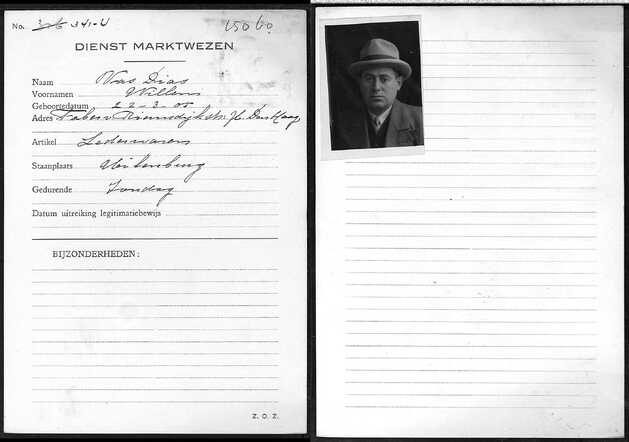 No. 341-U
15060
DIENST MARKTWEZEN
Naam Vas Dias
Voornamen Willem
Geboortedatum 22-3-05
Adres Riemsdijkstr. Den Haag
Artikel Lederwaren
Staanplaats Uilenburg
Gedurende Zondag
Datum uitreiking legitimatiebewijs
BIJZONDERHEDEN:
Z. O. Z.